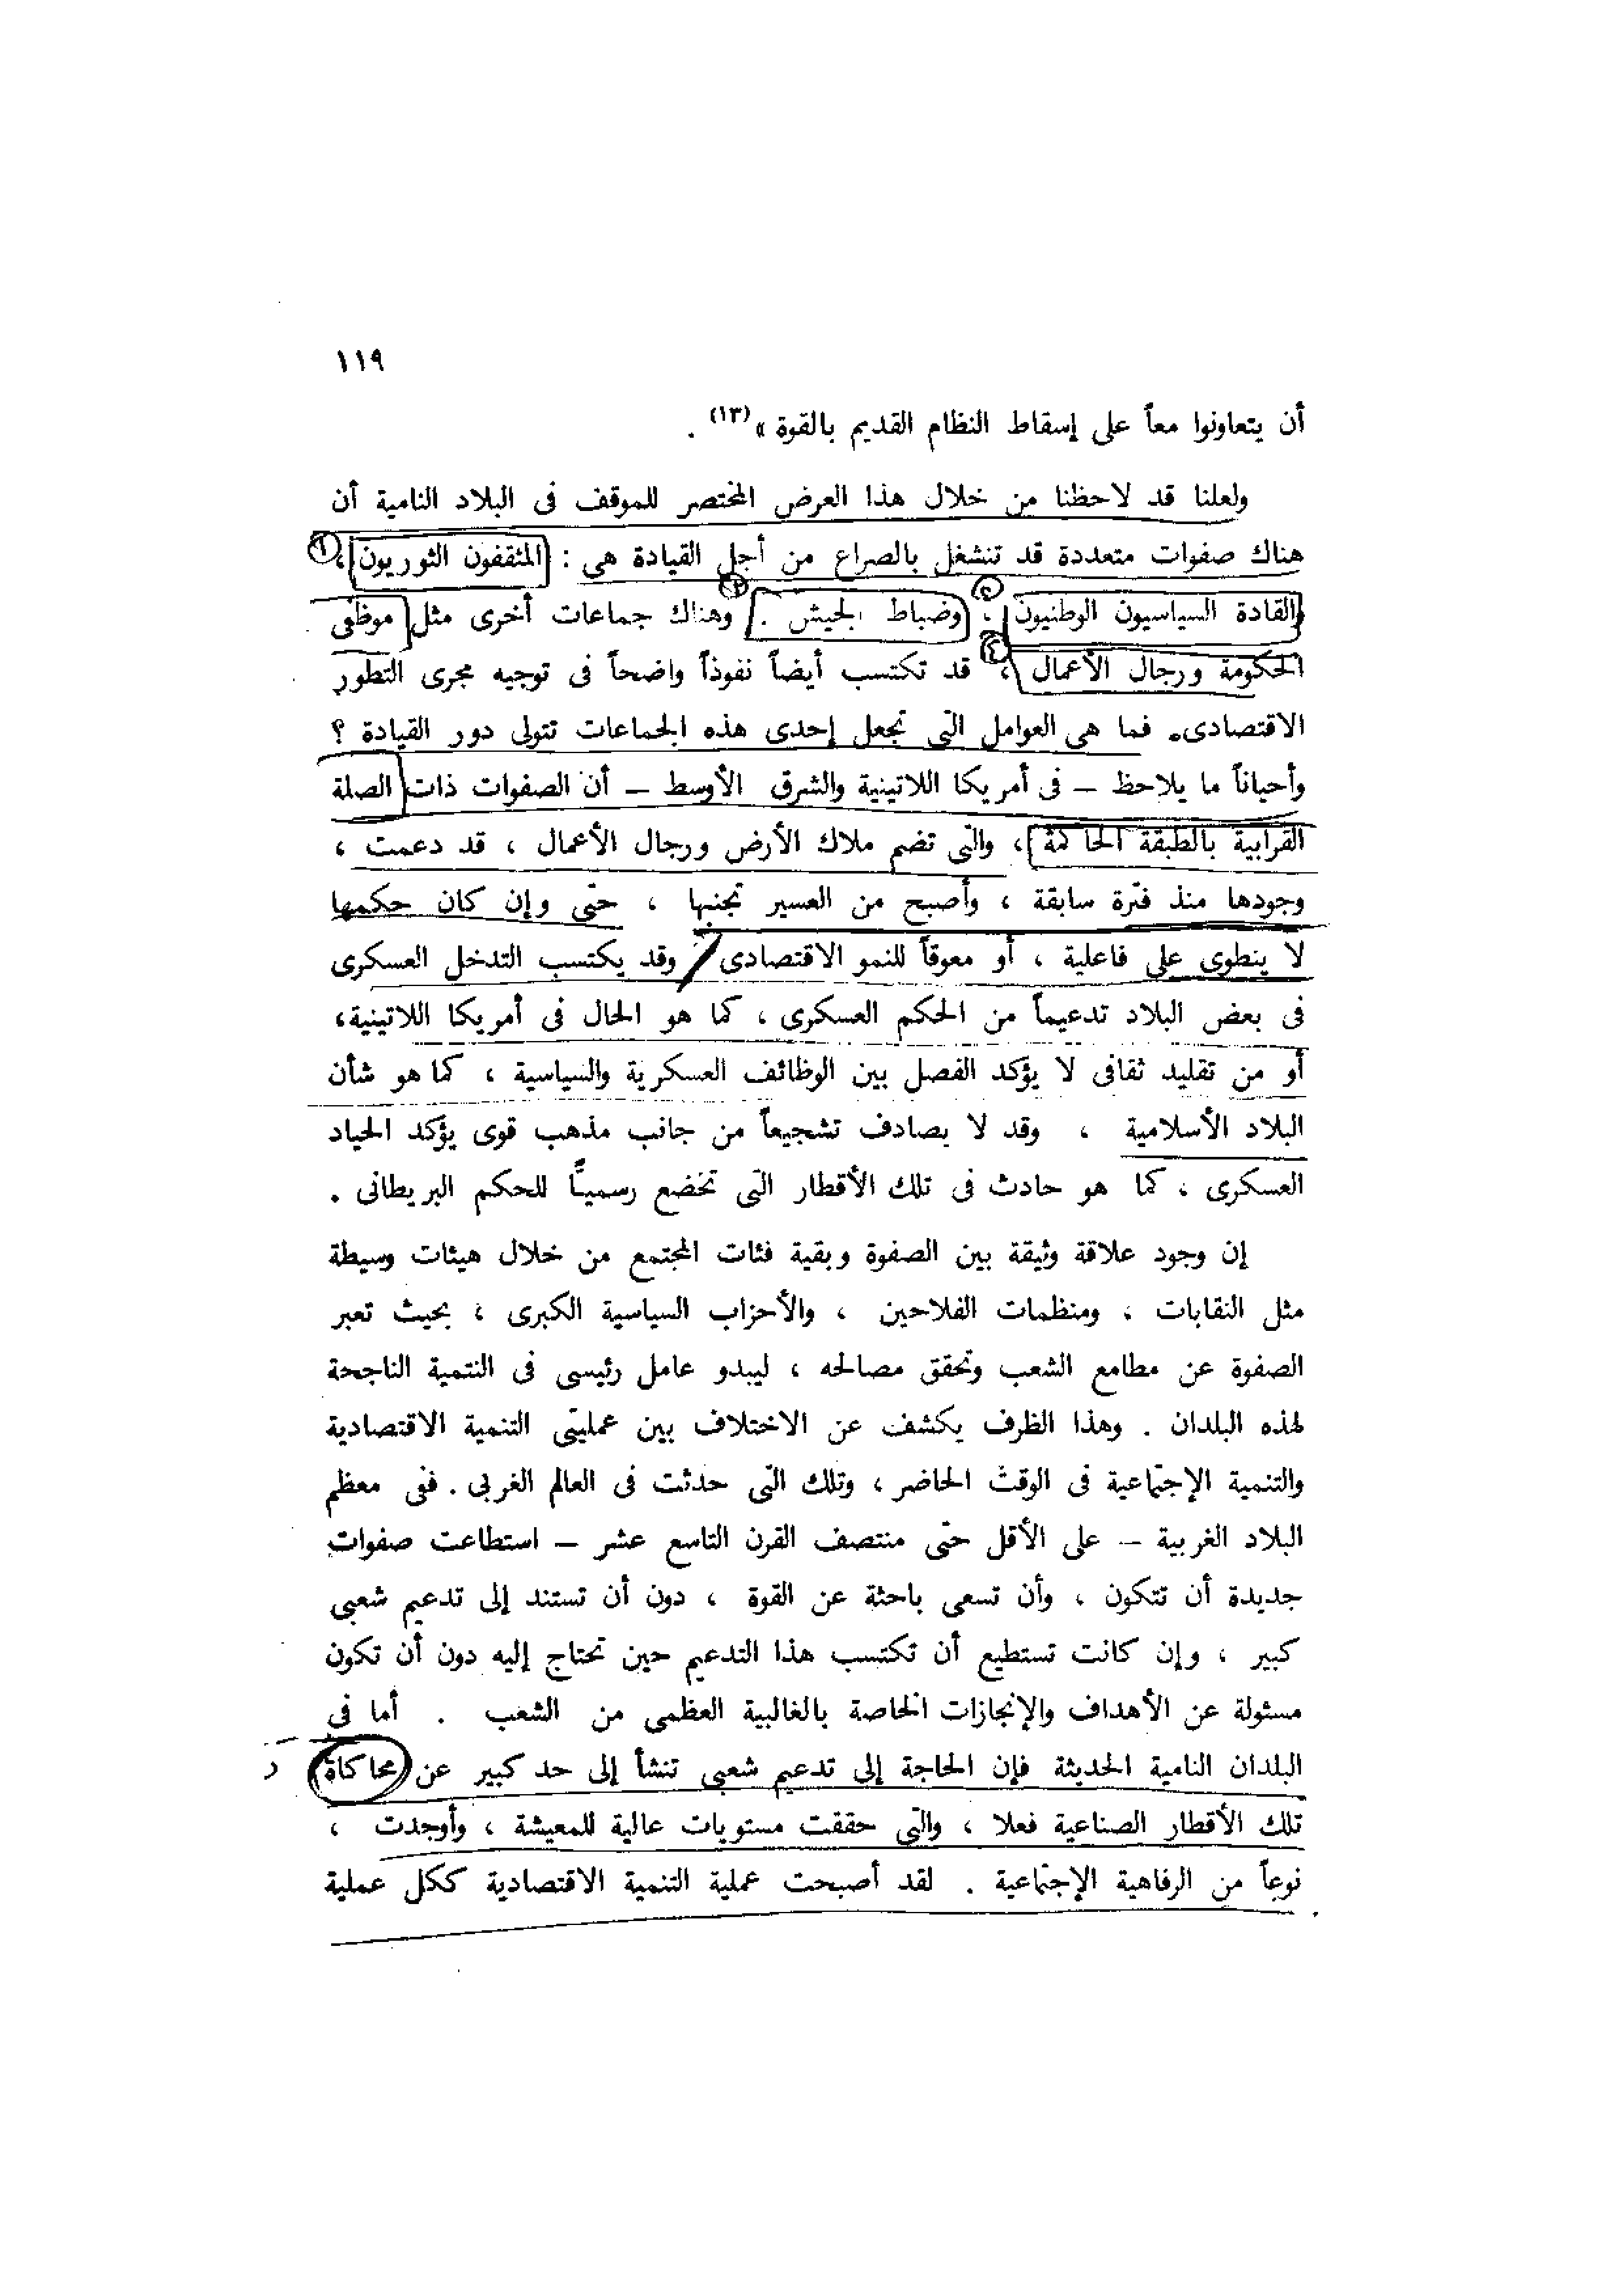 ١١٩
أن يتعاونوا معاً على إسقاط النظام القديم بالقوة » (١٣) .
ولعلنا قد لاحظنا من خلال هذا العرض المختصر للموقف فى البلاد النامية أن
هناك صفوات متعددة قد تنشغل بالصراع من أجل القيادة هى : المثقفون الثوريون ،
والقادة السياسيون الوطنيون ، وضباط الجيش . وهناك جماعات أخرى مثل موظفى
الحكومة ورجال الأعمال ، قد تكتسب أيضاً نفوذاً واضحاً فى توجيه مجرى التطور
الاقتصادى. فما هى العوامل التى تجعل إحدى هذه الجماعات تتولى دور القيادة ؟
وأحياناً ما يلاحظ – فى أمريكا اللاتينية والشرق الأوسط – أن الصفوات ذات الصلة
القرابية بالطبقة الحاكمة ، والتى تضم ملاك الأرض ورجال الأعمال ، قد دعمت ،
وجودها منذ فترة سابقة ، وأصبح من العسير تجنبها ، حتى وإن كان حكمها
لا ينطوى على فاعلية ، أو معوقاً للنمو الاقتصادى وقد يكتسب التدخل العسكرى
فى بعض البلاد تدعيماً من الحكم العسكرى ، كما هو الحال فى أمريكا اللاتينية،
أو من تقليد ثقافى لا يؤكد الفصل بين الوظائف العسكرية والسياسية ، كما هو شأن
البلاد الأسلامية ، وقد لا يصادف تشجيعاً من جانب مذهب قوى يؤكد الحياد
العسكرى ، كما هو حادث فى تلك الأقطار التى تخضع رسميـًّا للحكم البريطانى .
إن وجود علاقة وثيقة بين الصفوة وبقية فئات المجتمع من خلال هيئات وسيطة
مثل النقابات ، ومنظمات الفلاحين ، والأحزاب السياسية الكبرى ، بحيث تعبر
الصفوة عن مطامع الشعب وتحقق مصالحه ، ليبدو عامل رئيسى فى التنمية الناجحة
لهذه البلدان . وهذا الظرف يكشف عن الاختلاف بين عمليتى التنمية الاقتصادية
والتنمية الإجتماعية فى الوقت الحاضر ، وتلك التى حدثت فى العالم الغربى . ففى معظم
البلاد الغربية – على الأقل حتى منتصف القرن التاسع عشر – استطاعت صفوات
جديدة أن تتكون ، وأن تسعى باحثة عن القوة ، دون أن تستند إلى تدعيم شعبى
كبير ، وإن كانت تستطيع أن تكتسب هذا التدعيم حين تحتاج إليه دون أن تكون
مسئولة عن الأهداف والإنجازات الخاصة بالغالبية العظمى من الشعب . أما فى
البلدان النامية الحديثة فإن الحاجة إلى تدعيم شعبى تنشأ إلى حد كبير عن محاكاة
تلك الأقطار الصناعية فعلا ، والتى حققت مستويات عالية للمعيشة ، وأوجدت ،
نوعاً من الرفاهية الإجتماعية . لقد أصبحت عملية التنمية الاقتصادية ككل عملية